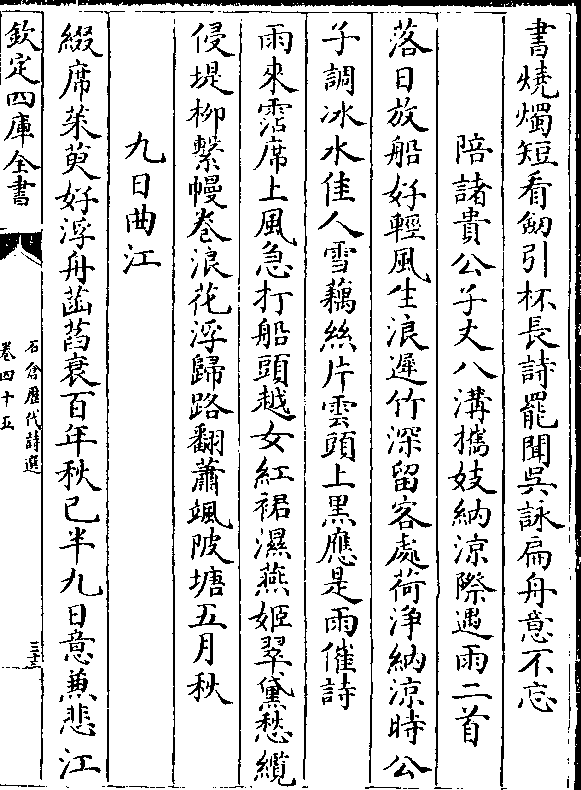 書燒燭短看劒引杯長詩罷聞吳詠扁舟意不忘
陪諸貴公子丈八溝擕妓納涼際遇雨二首
落日放船好輕風生浪遲竹深留客處荷浄納涼時公
子調冰水佳人雪藕絲片雲頭上黒應是雨催詩
雨來霑席上風急打船頭越女紅裙濕燕姬翠黛愁纜
侵堤柳繫幔卷浪花浮歸路翻蕭颯陂塘五月秋
九日曲江
綴席茱萸好浮舟菡萏衰百年秋已半九日意兼悲江
欽定四庫全書
石倉歴代詩選
卷四十五
三十三